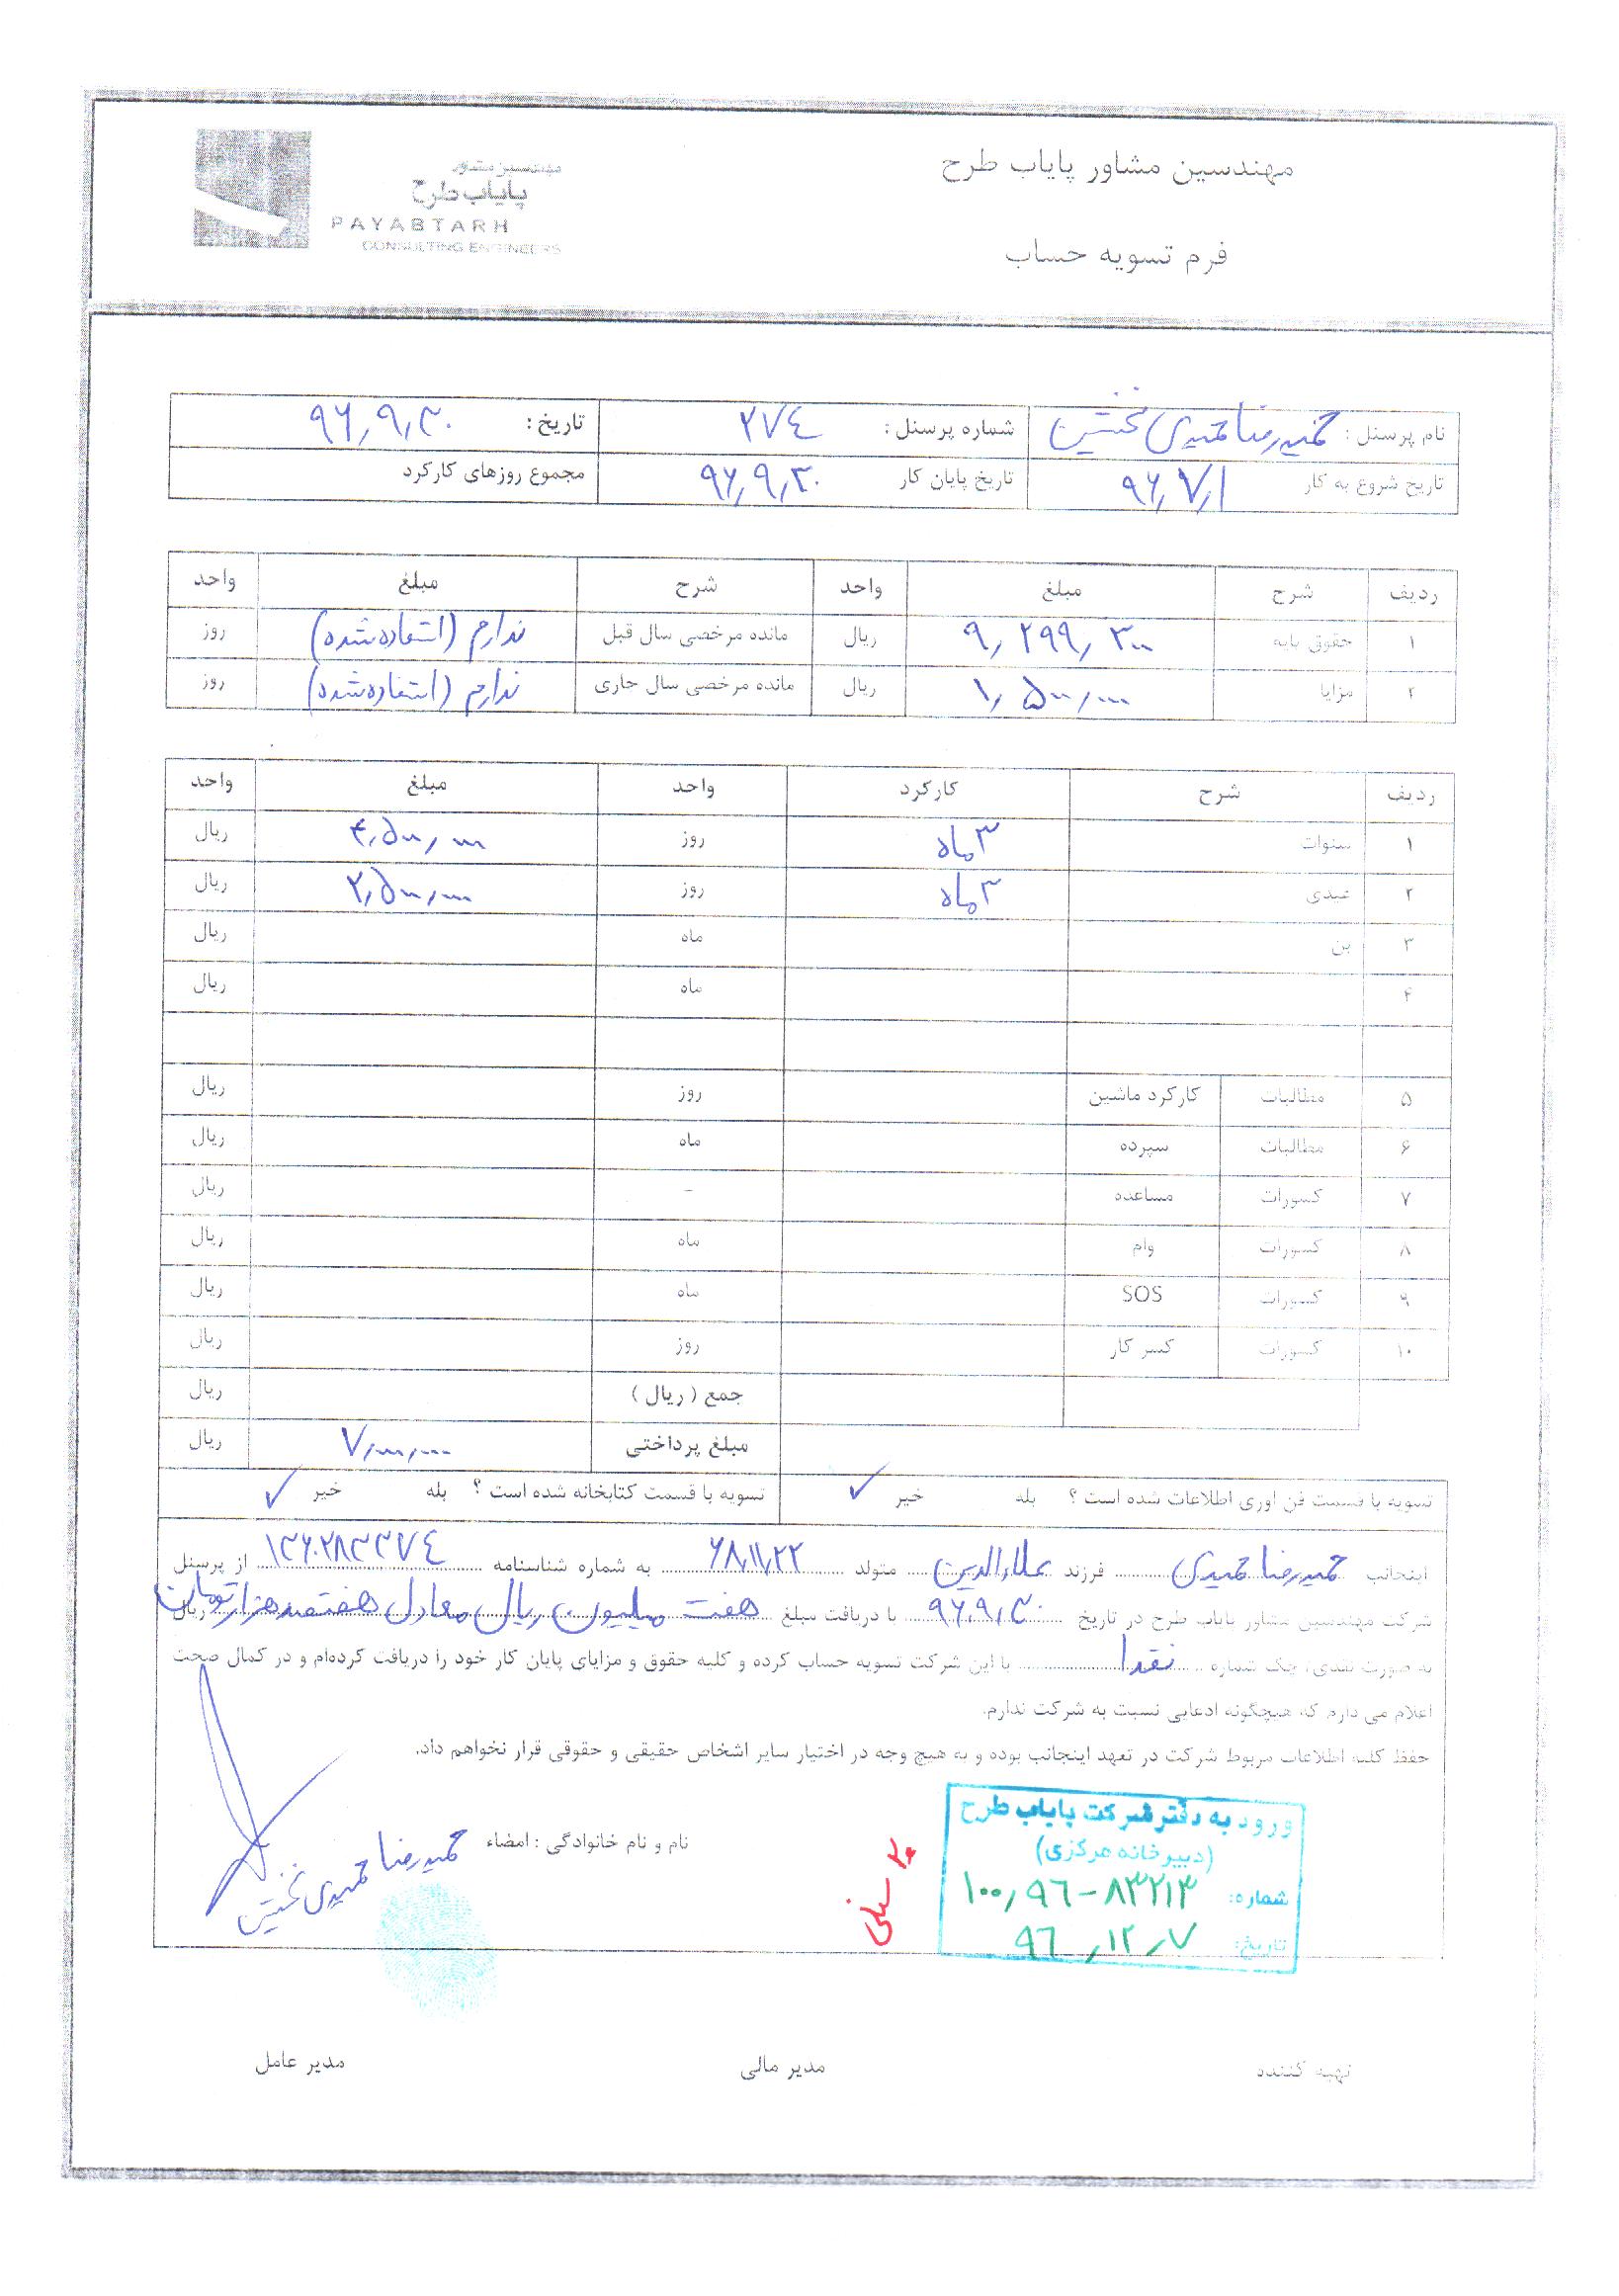 مهندسین مشاور پایاب طرح
فرم تسویه حساب
مهندسین مشاور
پایاب طرح
PAYABTARH
CONSULTING ENGINEERS
نام پرسنل : حمیدرضا حمیدی شماره پرسنل : ۲۷۴ تاریخ : ۹۶٫۹٫۳۰
تاریخ شروع به کار ۹۶٫۷٫۱ تاریخ پایان کار ۹۶٫۹٫۳۰ مجموع روزهای کارکرد
ردیف شرح مبلغ واحد شرح مبلغ واحد
۱ حقوق پایه ۹٫۲۹۹٫۳۰۰ ریال مانده مرخصی سال قبل ندارم (استفاده شده) روز
۲ مزایا ۱٫۵۰۰٫۰۰۰ ریال مانده مرخصی سال جاری ندارم (استفاده شده) روز
ردیف شرح کارکرد واحد مبلغ واحد
۱ سنوات ۳ ماه روز ۴٫۵۰۰٫۰۰۰ ریال
۲ عیدی ۳ ماه روز ۲٫۵۰۰٫۰۰۰ ریال
۳ بن ماه ریال
۴ ماه ریال
۵ مطالبات کارکرد ماشین روز ریال
۶ مطالبات سپرده ماه ریال
۷ کسورات مساعده - ریال
۸ کسورات وام ماه ریال
۹ کسورات SOS ماه ریال
۱۰ کسورات کسر کار روز ریال
جمع ( ریال ) ریال
مبلغ پرداختی ۷٫۰۰۰٫۰۰۰ ریال
تسویه با قسمت فن اوری اطلاعات شده است ؟ بله خیر ✓ تسویه با قسمت کتابخانه شده است ؟ بله خیر ✓
اینجانب حمیدرضا حمیدی فرزند علاءالدین متولد ۶۸٫۱۱٫۲۲ به شماره شناسنامه ۱۳۶۰۲۸۳۳۷۴ از پرسنل
شرکت مهندسین مشاور پایاب طرح در تاریخ ۹۶٫۹٫۳۰ با دریافت مبلغ هفت میلیون ریال معادل هفتصد هزار تومان ریال
به صورت نقدی، چک شماره نقدا با این شرکت تسویه حساب کرده و کلیه حقوق و مزایای پایان کار خود را دریافت کرده‌ام و در کمال صحت
اعلام می دارم که هیچگونه ادعایی نسبت به شرکت ندارم.
حفظ کلیه اطلاعات مربوط شرکت در تعهد اینجانب بوده و به هیچ وجه در اختیار سایر اشخاص حقیقی و حقوقی قرار نخواهم داد.
نام و نام خانوادگی : امضاء حمیدرضا حمیدی
ورود به دفتر شرکت پایاب طرح
(دبیرخانه مرکزی)
شماره: ۱۰۰٫۹۶-۸۳۲۱۳
تاریخ: ۹۶٫۱۲٫۷
تهیه کننده مدیر مالی مدیر عامل